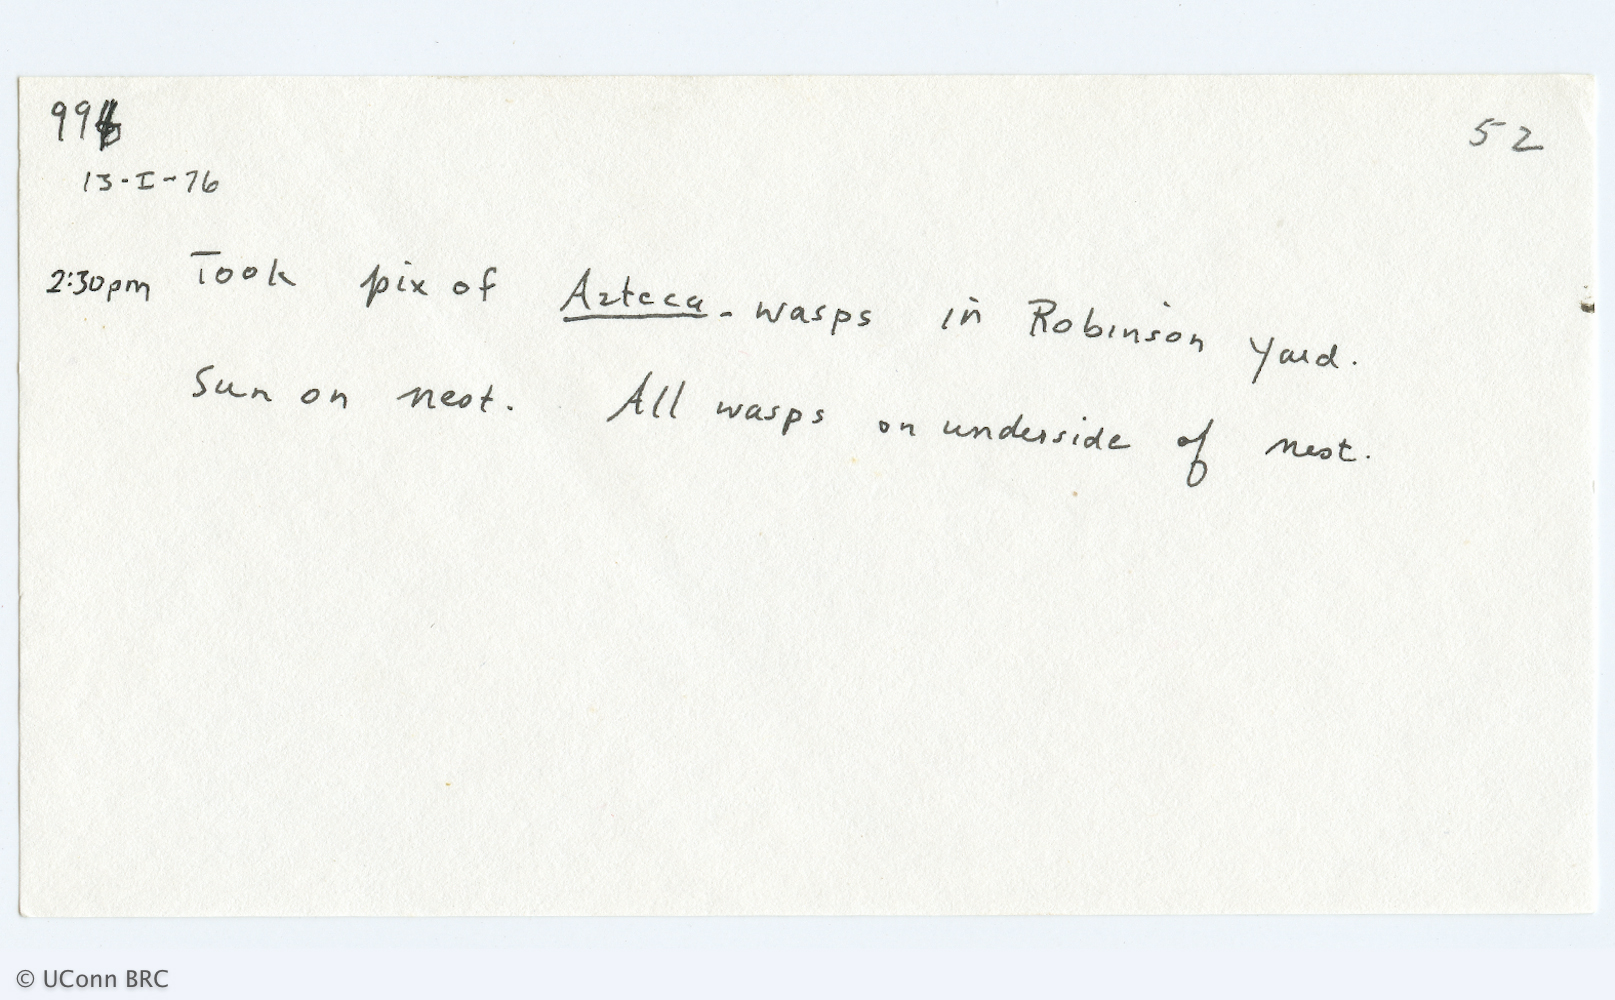 99
52
13-I-76
2:30pm Took pix of Azteca-wasps in Robinson yard.
Sun on nest. All wasps on underside of nest.
© UConn BRC